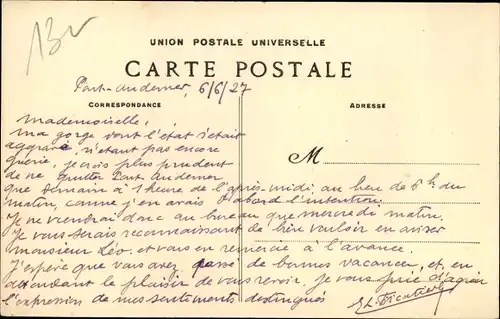 13v
UNION POSTALE UNIVERSELLE
CARTE POSTALE
Pont-Audemer, 6/6/27
CORRESPONDANCE
ADRESSE
M
Mademoiselle,
Ma gorge dont l'état s'était
aggravé, n'étant pas encore
guérie, je crois plus prudent
de ne quitter Pont Audemer
que demain à 1 heure de l'après-midi, au lieu de 5 h du
matin, comme j'en avais d'abord l'intention.
Je ne viendrai donc au bureau que mercredi matin.
Je vous serais reconnaissant de bien vouloir en aviser
monsieur Léo, et vous en remercie à l'avance.
J'espère que vous avez passé de bonnes vacances, et, en
attendant le plaisir de vous revoir, je vous prie d'agréer
l'expression de mes sentiments distingués